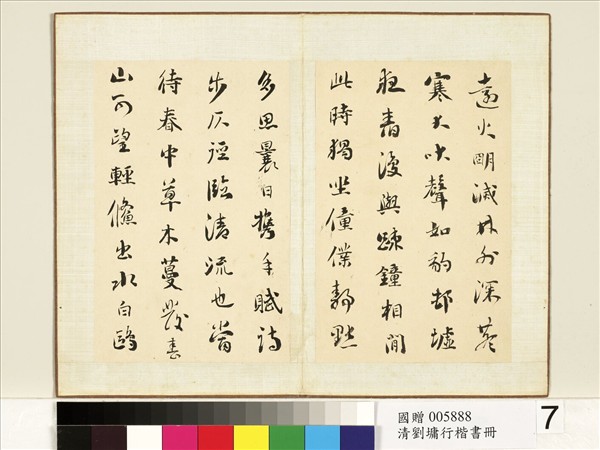 遠火明滅林外深巷
寒犬吠聲如豹邨墟
夜舂復與疎鐘相間
此時獨坐僮僕靜默
多思曩日攜手賦詩
步仄逕臨清流也當
待春中草木蔓發春
山可望輕鯈出水白鷗
國贈 005888
清劉墉行楷書冊
7